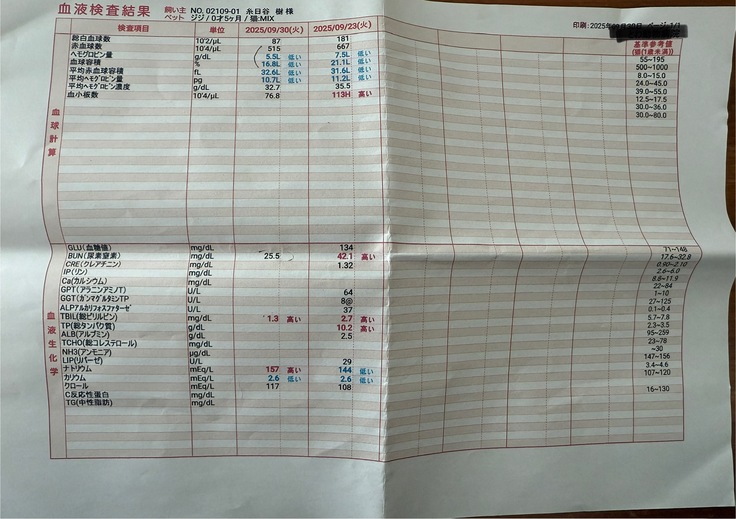 血液検査結果 飼い主 NO. 02109-01 糸日谷 樹 様
ペット ジジ / 0才5ヶ月 / 猫:MIX
印刷: 2025年
検査項目 単位 2025/09/30(火) 2025/09/23(火) 基準参考値
(猫(1歳未満))
血球計算
総白血球数 10^2/μL 87 181 55~195
赤血球数 10^4/μL 515 667 500~1000
ヘモグロビン量 g/dL 5.5L 低い 7.5L 低い 8.0~15.0
血球容積 % 16.8L 低い 21.1L 低い 24.0~45.0
平均赤血球容積 fL 32.6L 低い 31.6L 低い 39.0~55.0
平均ヘモグロビン量 pg 10.7L 低い 11.2L 低い 12.5~17.5
平均ヘモグロビン濃度 g/dL 32.7 35.5 30.0~36.0
血小板数 10^4/μL 76.8 113H 高い 30.0~80.0
血液生化学
GLU(血糖値) mg/dL 134 71~148
BUN(尿素窒素) mg/dL 25.5 42.1 高い 17.6~32.8
CRE(クレアチニン) mg/dL 1.32 0.90~2.10
IP(リン) mg/dL 2.6~6.0
Ca(カルシウム) mg/dL 8.8~11.9
GPT(アラニンアミノT) U/L 64 22~84
GGT(ガンマグルタミンTP U/L 8@ 1~10
ALPアルカリフォスファターゼ U/L 37 27~125
TBIL(総ビリルビン) mg/dL 1.3 高い 2.7 高い 0.1~0.4
TP(総タンパク質) g/dL 10.2 高い 5.7~7.8
ALB(アルブミン) g/dL 2.5 2.3~3.5
TCHO(総コレステロール) mg/dL 95~259
NH3(アンモニア) μg/dL 23~78
LIP(リパーゼ) U/L 29 ~30
ナトリウム mEq/L 157 高い 144 低い 147~156
カリウム mEq/L 2.6 低い 2.6 低い 3.4~4.6
クロール mEq/L 117 108 107~120
C反応性蛋白 mg/dL
TG(中性脂肪) mg/dL 16~130